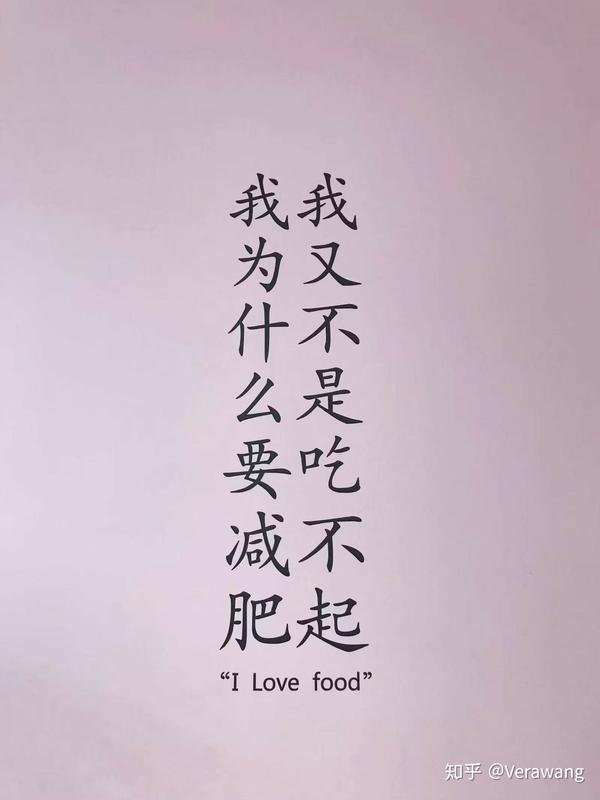 我又不是吃不起
我为什么要减肥
“I Love food”
知乎 @Verawang